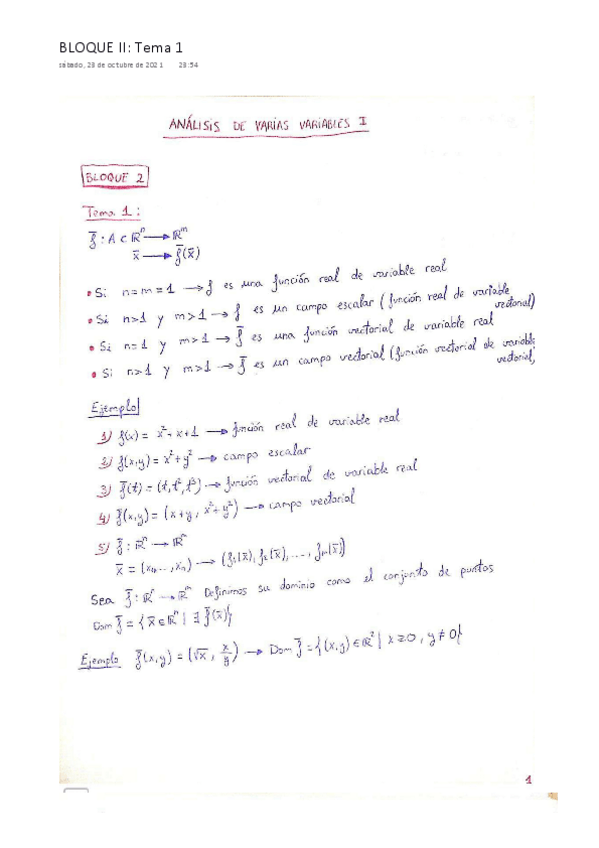 BLOQUE II: Tema 1
sábado, 23 de octubre de 2021 23:54
ANÁLISIS DE VARIAS VARIABLES I
BLOQUE 2
Tema 1:
f̄ : A ⊂ ℝⁿ → ℝᵐ
x̄ → f̄(x̄)
• Si n=m=1 → f es una función real de variable real
• Si n>1 y m>1 → f es un campo escalar (función real de variable vectorial)
• Si n=1 y m>1 → f̄ es una función vectorial de variable real
• Si n>1 y m>1 → f̄ es un campo vectorial (función vectorial de variable vectorial)
Ejemplo
1) f(x) = x²+x+1 → función real de variable real
2) f(x,y) = x²+y² → campo escalar
3) f̄(t) = (t, t², t³) → función vectorial de variable real
4) f̄(x,y) = (x+y, x²+y²) → campo vectorial
5) f̄ : ℝⁿ → ℝᵐ
x̄ = (x₁, ..., xₙ) → (f₁(x̄), f₂(x̄), ..., fₘ(x̄))
Sea f̄ : ℝⁿ → ℝᵐ Definimos su dominio como el conjunto de puntos
Dom f̄ = {x̄ ∈ ℝⁿ | ∃ f̄(x̄)}
Ejemplo f̄(x,y) = (√x, x/y) → Dom f̄ = {(x,y) ∈ ℝ² | x≥0, y≠0}
1